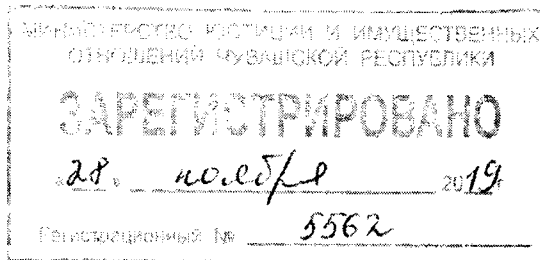 МИНИСТЕРСТВО ЮСТИЦИИ И ИМУЩЕСТВЕННЫХ
ОТНОШЕНИЙ ЧУВАШСКОЙ РЕСПУБЛИКИ
ЗАРЕГИСТРИРОВАНО
«28» ноября 2019 г
Регистрационный № 5562